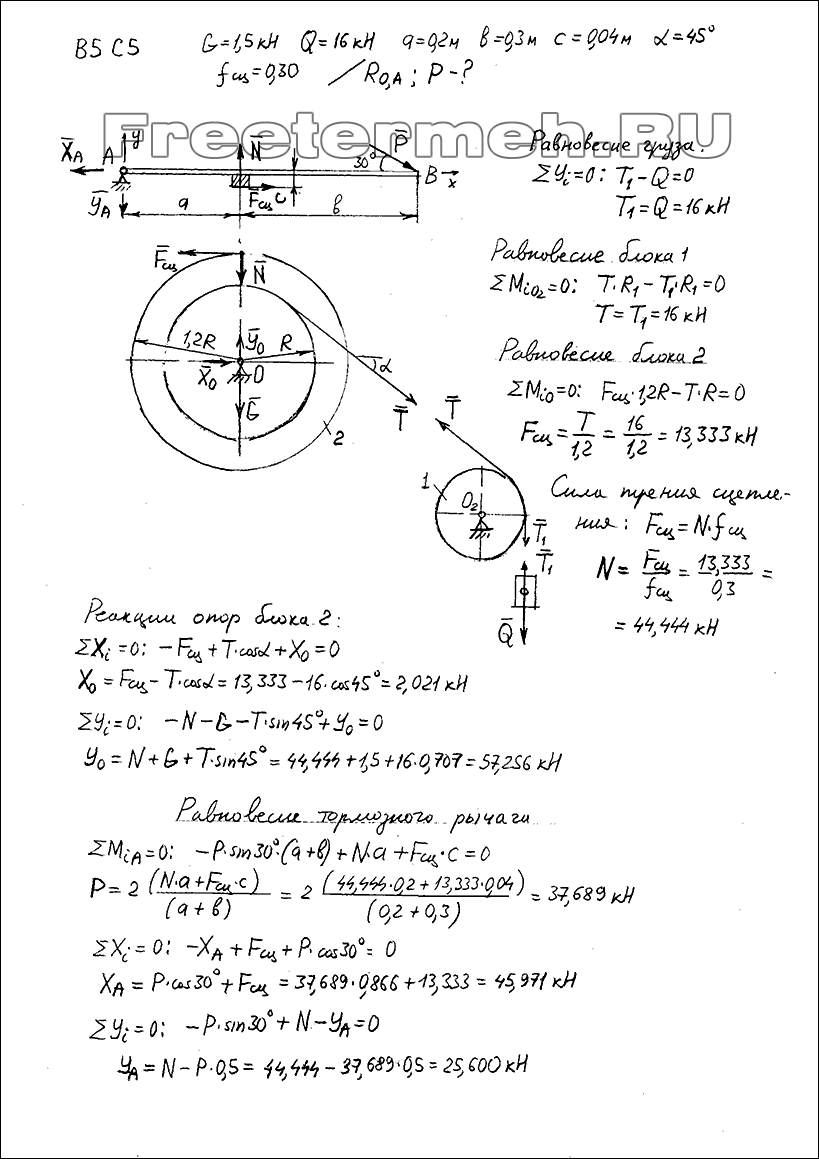 В5 С5 G=1,5кН Q=16кН a=0,2м в=0,3м c=0,04м α=45°
fсц=0,30 / R0,A ; P-?
Freetermeh.RU
X̄A A y N̄ 30° P̄ B x
ȲA a F̄сц c в
Равновесие груза:
ΣYi=0: T1-Q=0
T1=Q=16кН
F̄сц N̄
1,2R Ȳ0 R
X̄0 O α
Ḡ
2
T̄ T̄
1 O2
T̄1
T̄1
Q̄
Равновесие блока 1
ΣMiO2=0: T·R1-T1·R1=0
T=T1=16кН
Равновесие блока 2
ΣMiO=0: Fсц·1,2R-T·R=0
Fсц=T/1,2=16/1,2=13,333кН
Сила трения сцепле-
ния: Fсц=N·fсц
N=Fсц/fсц=13,333/0,3=
=44,444кН
Реакции опор блока 2:
ΣXi=0: -Fсц+T·cosα+X0=0
X0=Fсц-T·cosα=13,333-16·cos45°=2,021кН
ΣYi=0: -N-G-T·sin45°+Y0=0
Y0=N+G+T·sin45°=44,444+1,5+16·0,707=57,256кН
Равновесие тормозного рычага
ΣMiA=0: -P·sin30°·(a+в)+N·a+Fсц·c=0
P=2(N·a+Fсц·c)/(a+в)=2(44,444·0,2+13,333·0,04)/(0,2+0,3)=37,689кН
ΣXi=0: -XA+Fсц+P·cos30°=0
XA=P·cos30°+Fсц=37,689·0,866+13,333=45,971кН
ΣYi=0: -P·sin30°+N-YA=0
YA=N-P·0,5=44,444-37,689·0,5=25,600кН